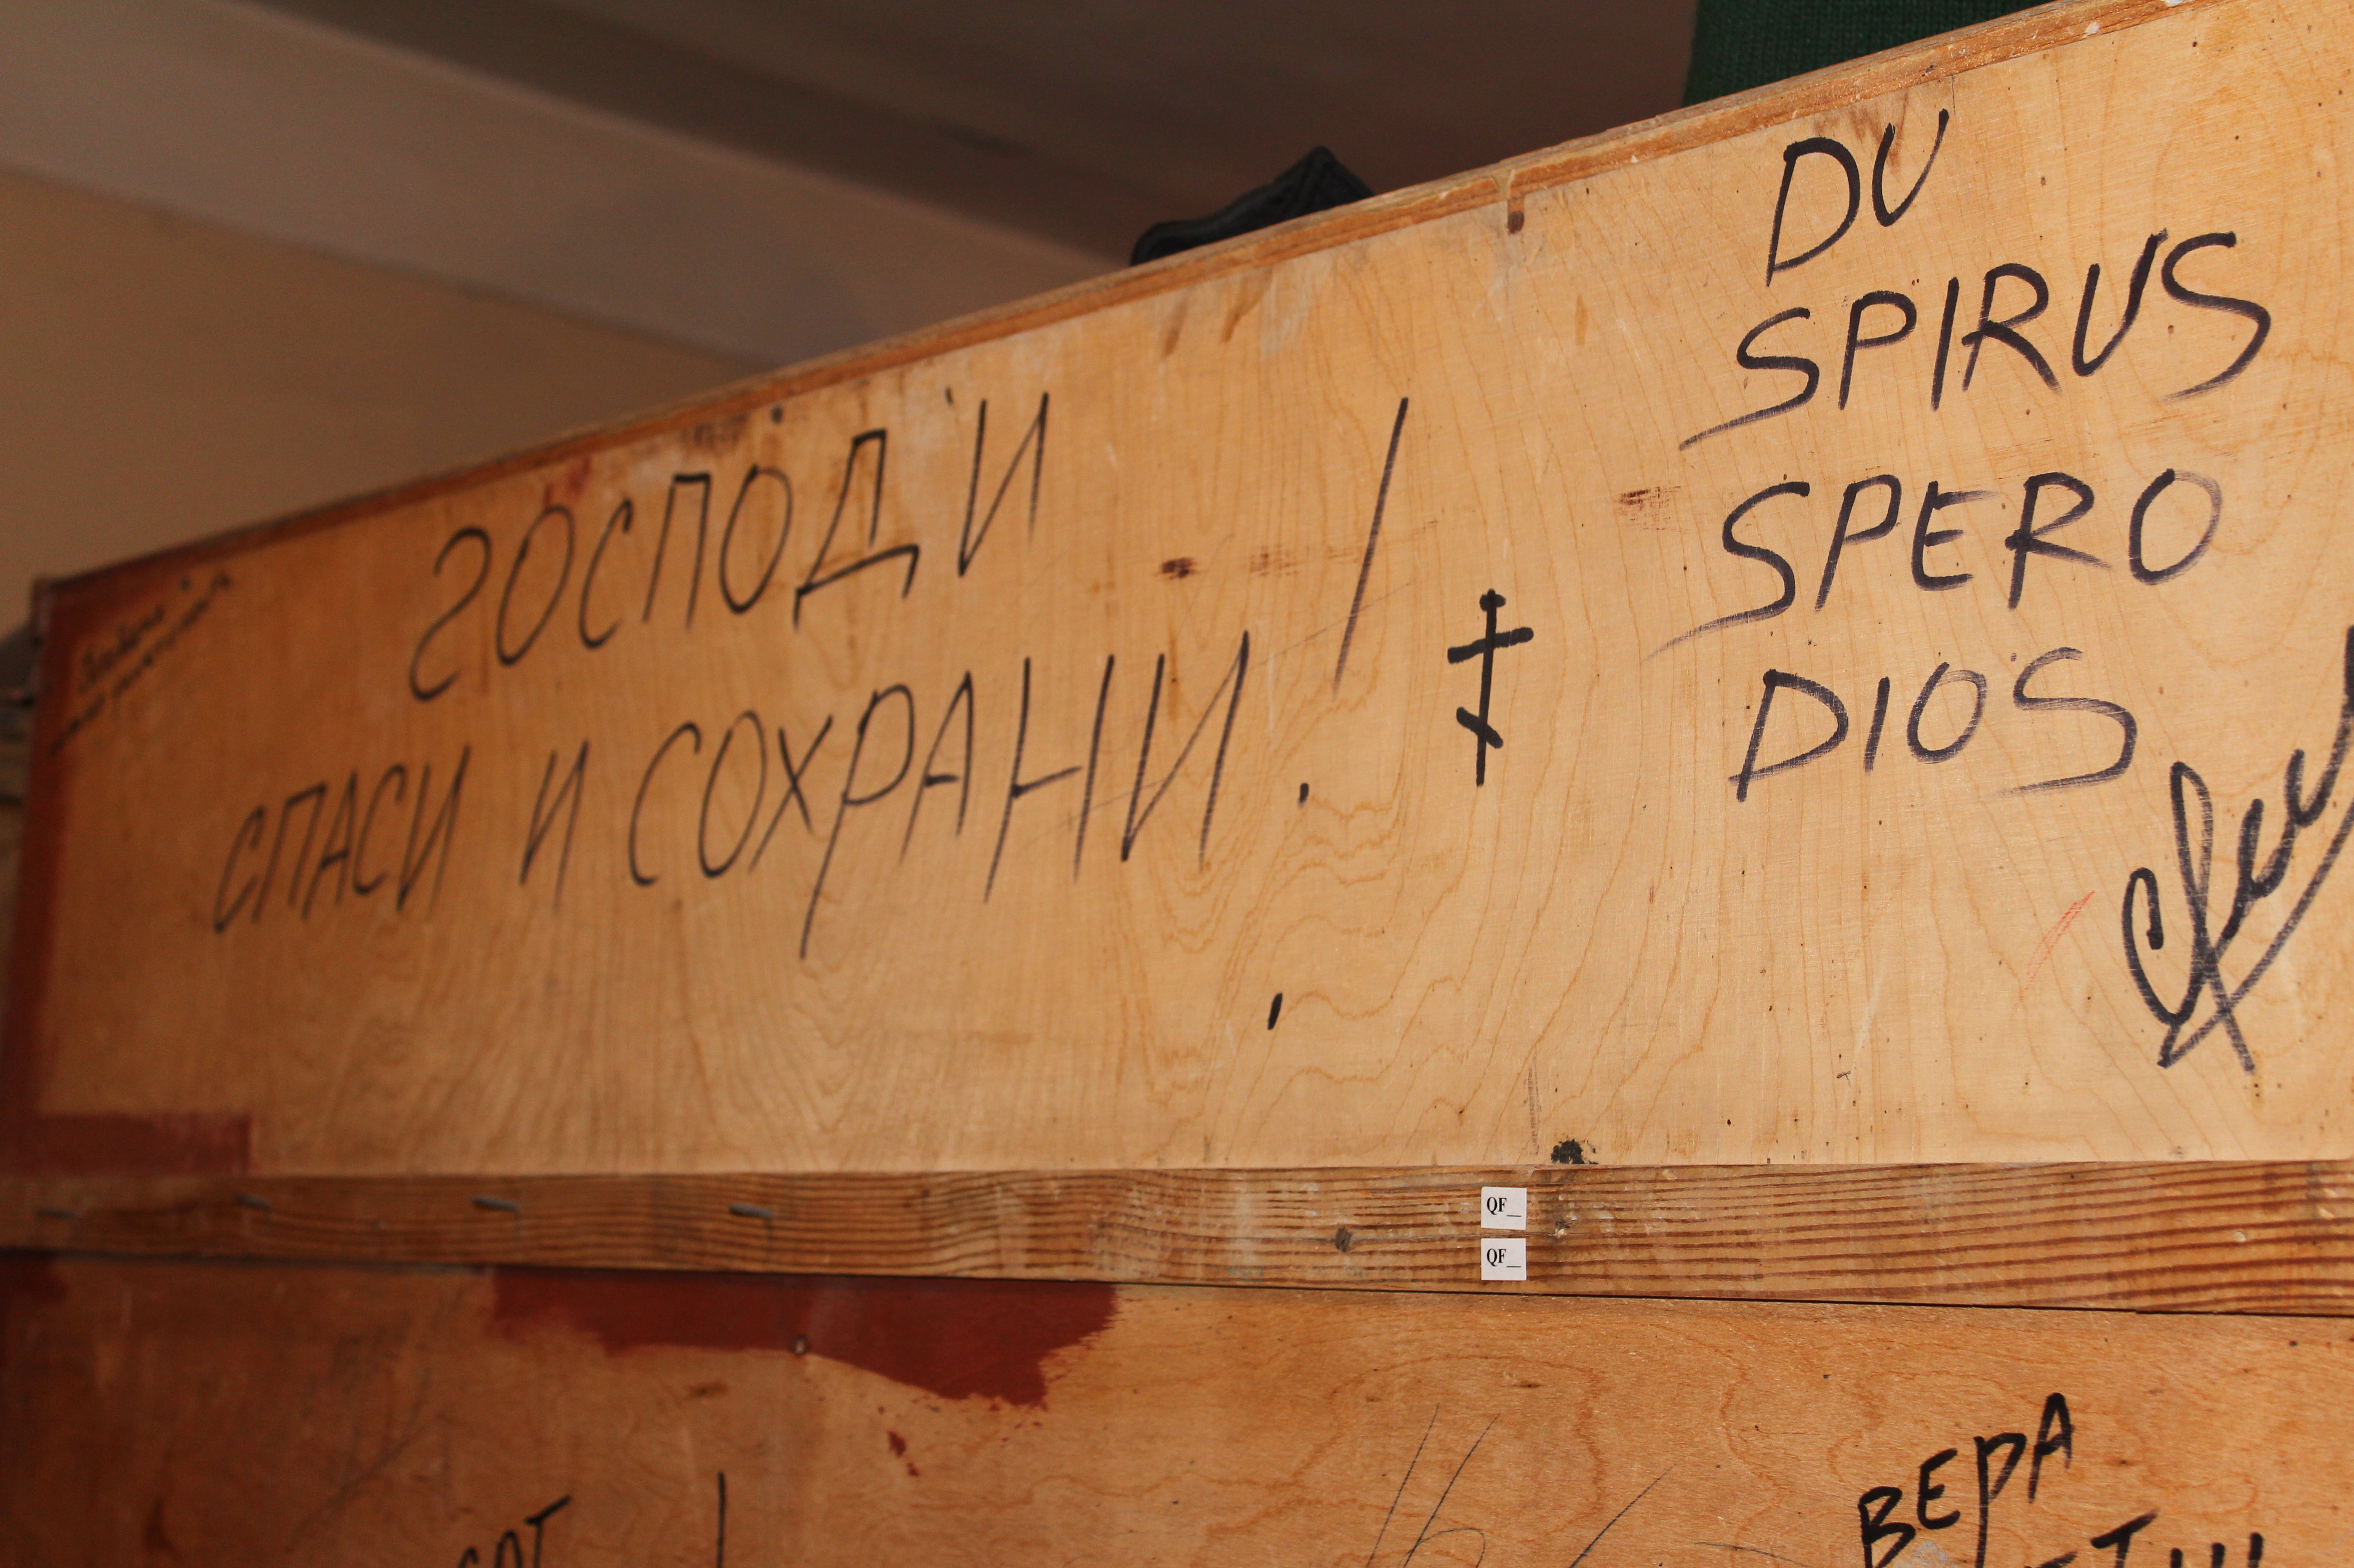 DU
SPIRUS
SPERO
DIOS
ГОСПОДИ
СПАСИ И СОХРАНИ!
QF_
QF_
ВЕРА